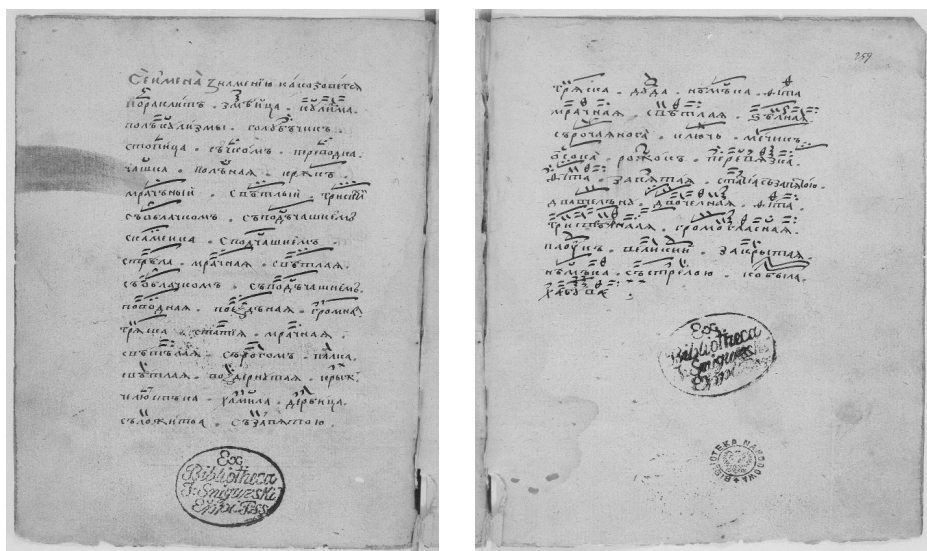 Се имена знамению како зовется
параклитъ . змѣица . кулизма .
полъкулизмы . голубъчикъ .
стопица . съ очкомъ . переводка .
чашка . полъная . крюкъ .
мрачъный . свѣтлый . тресвѣ
съоблачкомъ . съподъчашиемъ
скамеица . сподчашиемъ .
стрѣла . мрачная . свѣтлая .
съоблачкомъ . съподъчашиемъ .
поводная . поѣздъная . громная
тряска . статия . мрачная .
свѣтълая . съ рогомъ . палка .
свѣтлая . воздернутая . крыж .
челюстъка . хамила . дербица .
съложитъа . съ запятою .
Ex
Bibliotheca
J. Snigurski
Eppi Pss
259
тряска . дуда . немъка . Ѳита
мрачная . свѣтлая . зѣлная .
сърочаянога . ключь . мечикъ .
осока . рожокъ . перевязка .
Ѳита . запятая . статиа съ запятою .
двачелъна . двочелная . Ѳита .
тристрѣлная . громогласная .
паоукъ . великий . закрытая .
немъка . състрелою . кобыла .
хабува :
Ex
Bibliotheca
Snigurski
Eppi
BIBLIOTEKA NARODOWA